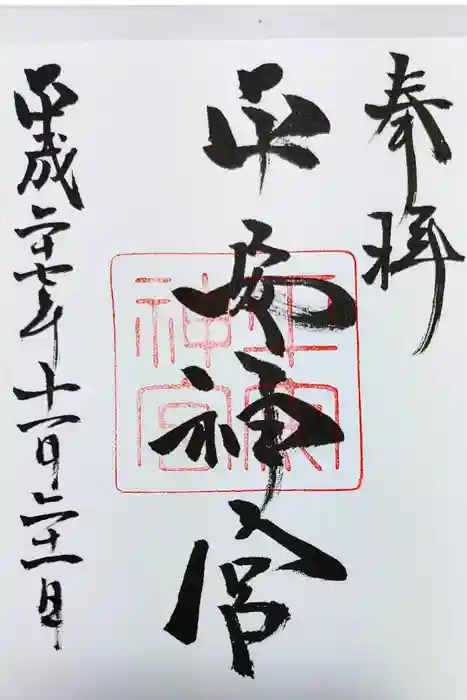 奉拝
平安神宮
平安神宮
平成二十七年十一月二十一日